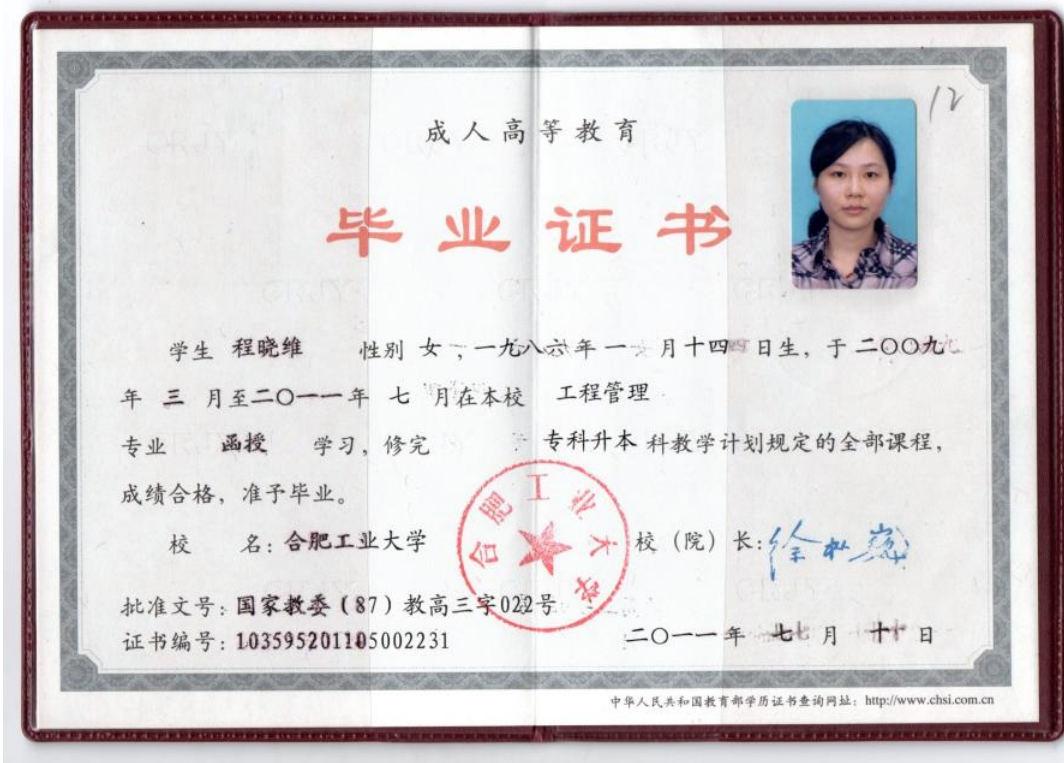 12
成人高等教育
毕业证书
学生 程晓维 性别 女，一九八六年 一 月十四 日生，于二〇〇九
年 三 月至二〇一一年 七 月在本校 工程管理
专业 函授 学习，修完 专科升本 科教学计划规定的全部课程，
成绩合格，准予毕业。
校 名：合肥工业大学 校（院）长：
合肥工业大学
批准文号：国家教委（87）教高三字022号
证书编号：103595201105002231 二〇一一年 七 月 十 日
中华人民共和国教育部学历证书查询网址：http://www.chsi.com.cn